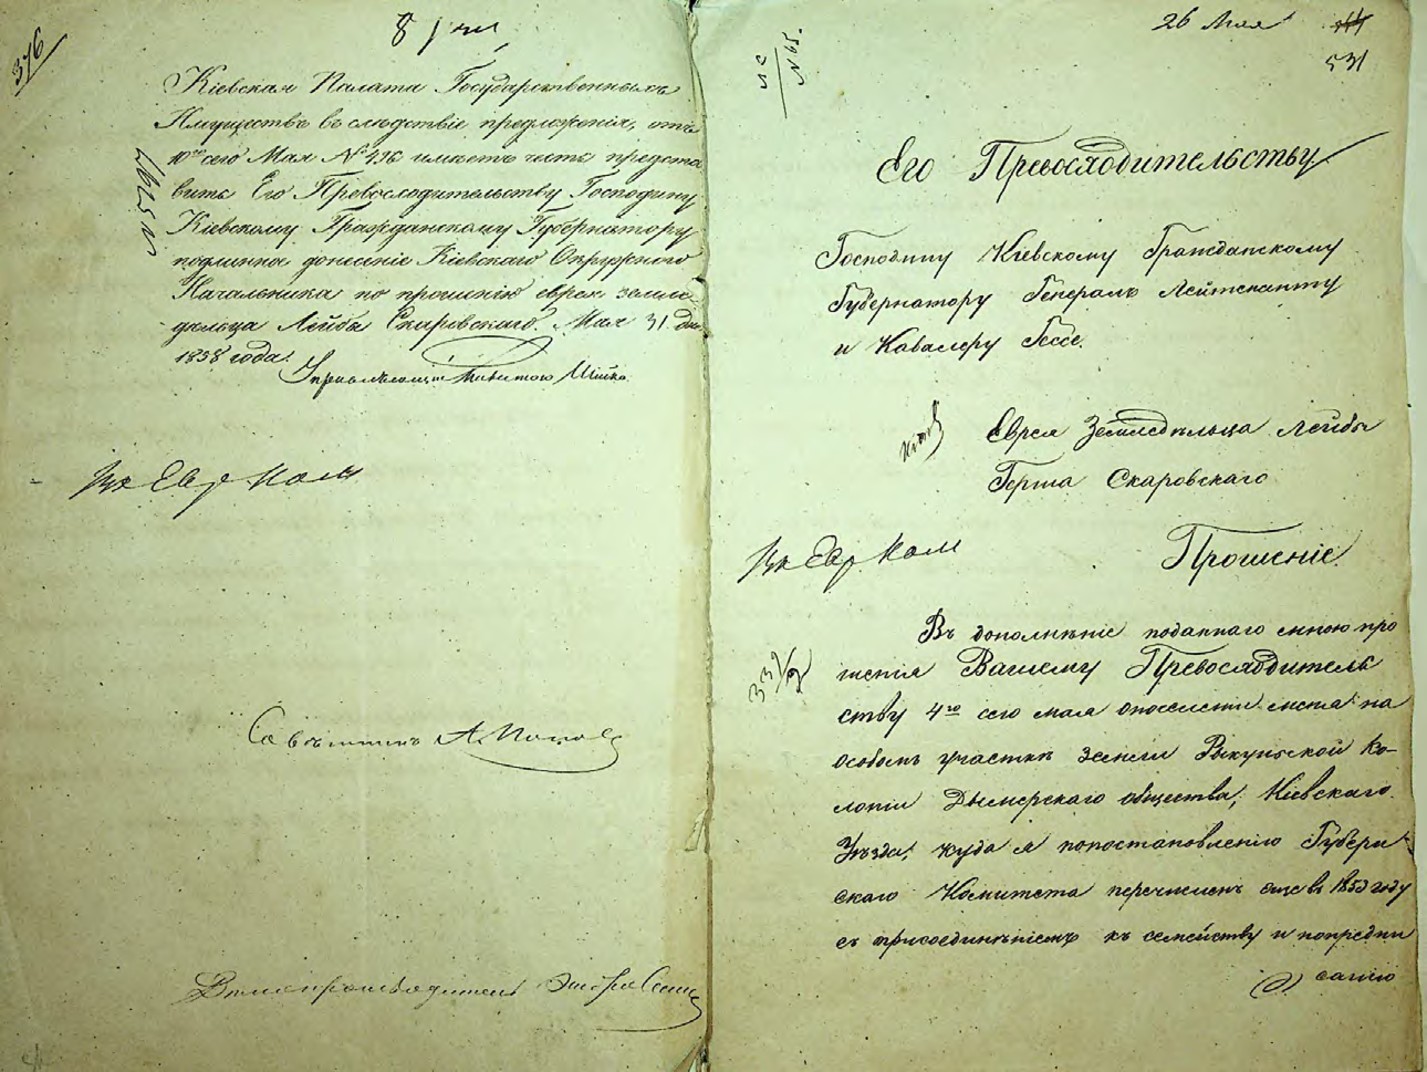 376
Кіевская Палата Государственныхъ
Имуществъ въ слѣдствіе предложенія, отъ
10го сего Мая № 496 имѣетъ честь предста
вить Его Превосходительству Господину
Кіевскому Гражданскому Губернатору
подлинное донесеніе Кіевскаго Окружнаго
Начальника по прошенію еврея земле-
дѣльца Лейбы Скаровскаго. Мая 31 дня
1858 года.
Управляющій Палатою
Въ Евр Ком
Совѣтникъ А. Поповъ
Дѣлопроизводитель
26 Мая
531
№ 65.
Его Превосходительству
Господину Кіевскому Гражданскому
Губернатору Генералъ Лейтенанту
и Кавалеру Гессе.
Еврея Земледѣльца Лейбы
Герша Скаровскаго
Прошеніе.
Въ Евр. Ком
Въ дополненіе поданнаго мною про
шенія Вашему Превосходитель
ству 4го сего мая опоселеніи меня на
особомъ участкѣ земли Рыкунской Ко-
лоніи Дымерскаго общества, Кіевскаго
Уѣзда, куда я попостановленію Губерн
скаго Комитета перечисленъ еще въ 1853 году
съ присоединѣніемъ къ семейству и попредпи
санію